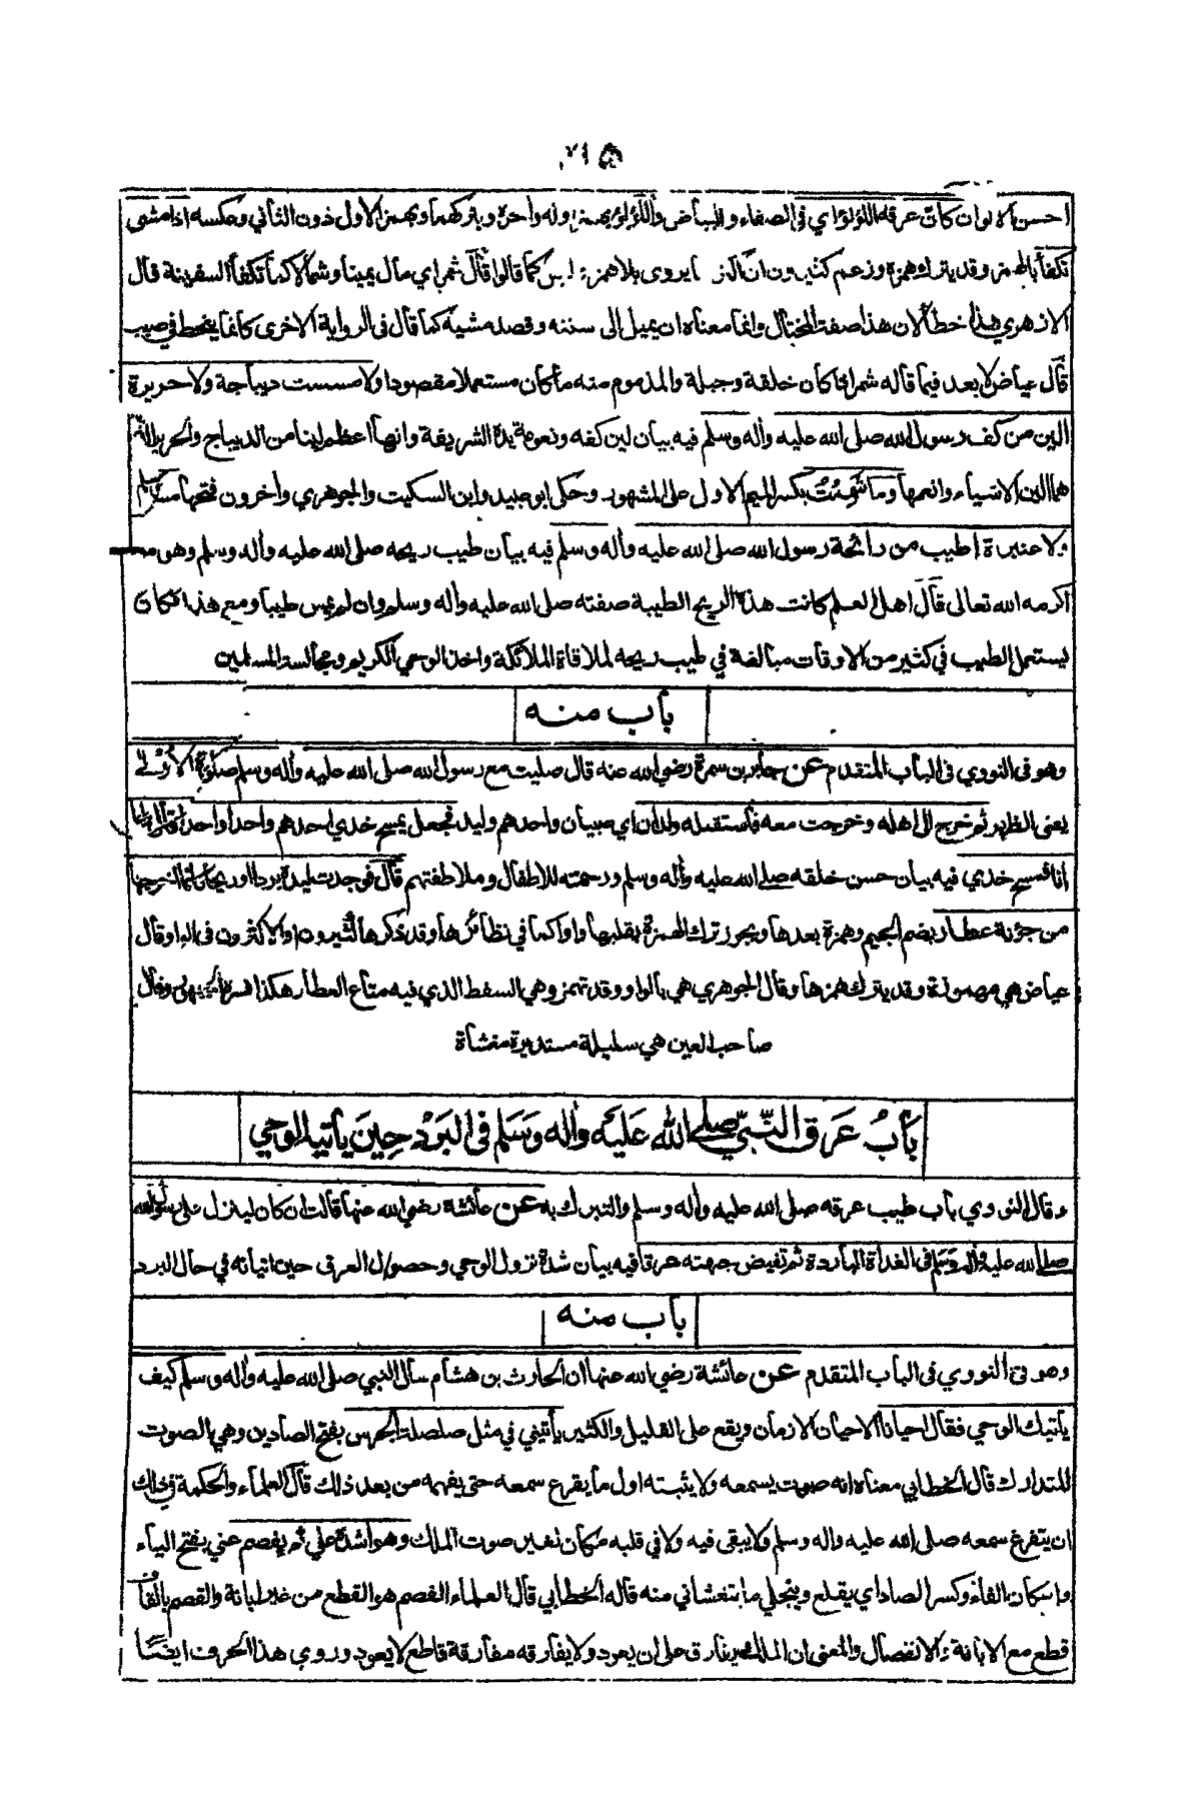 احسن الالوان كان عرقه اللؤلؤ اي في الصفاء والبياض واللؤلؤ بهمز اوله واخره وبتركهما وبهمز الاول دون الثاني وعكسه اذا مشى
تكفأ بالهمز وقد يترك همزه وزعم كثيرون ان اكثر ما يروى بلا همز كما قالوا قال شمر اي مال يمينا وشمالا كما تكفأ السفينة قال
الازهري هذا خطأ لان هذا صفة المختال وانما معناه ان يميل الى سننه وقصد مشيه كما قال في الرواية الاخرى كانما ينحط في صبب
قال عياض لا بعد فيما قاله شمر اذا كان خلقة وجبلة والمذموم منه ما كان مستعملا مقصودا ولا مسست ديباجة ولا حريرة
الين من كف رسول الله صلى الله عليه واله وسلم فيه بيان لين كفه ونعومة يده الشريفة وانها اعظم لينا من الديباج والحرير
هما الين الاشياء وانعمها وما شممت بكسر الميم الاول على المشهور وحكى ابو عبيد وابن السكيت والجوهري واخرون فتحها مسكة
ولا عنبرة اطيب من رائحة رسول الله صلى الله عليه واله وسلم فيه بيان طيب ريحه صلى الله عليه واله وسلم وهو مما
اكرمه الله تعالى قال اهل العلم كانت هذه الريح الطيبة صفته صلى الله عليه واله وسلم وان لم يمس طيبا ومع هذا فكان
يستعمل الطيب في كثير من الاوقات مبالغة في طيب ريحه لملاقاة الملائكة واخذ الوحي الكريم ومجالسة المسلمين
باب منه
وهو في النووي في الباب المتقدم عن جابر بن سمرة رضي الله عنه قال صليت مع رسول الله صلى الله عليه واله وسلم صلوة الاولى
يعني الظهر ثم خرج الى اهله وخرجت معه فاستقبله ولدان اي صبيان واحدهم وليد فجعل يمسح خدي احدهم واحدا واحدا قال واما
انا فمسح خدي فيه بيان حسن خلقه صلى الله عليه واله وسلم ورحمته للاطفال وملاطفتهم قال فوجدت ليده بردا او ريحا كانما اخرجها
من جؤنة عطار بضم الجيم وهمزة بعدها ويجوز ترك الهمزة بقلبها واوا كما في نظائرها وقد ذكرها كثيرون او الاكثرون في الواو قال
عياض هي مهموزة وقد يترك همزها وقال الجوهري هي بالواو وقد تهمز وهي السفط الذي فيه متاع العطار هكذا فسره الجمهور وقال
صاحب العين هي سليلة مستديرة مغشاة
بَابُ عَرَقِ النَّبِيِّ صلى الله عَلَيْه واله وَسَلم في البَرْدِ حِينَ يأتيه الوحي
وقال النووي باب طيب عرقه صلى الله عليه واله وسلم والتبرك به عن عائشة رضي الله عنها قالت ان كان لينزل على رسول الله
صلى الله عليه واله وسلم في الغداة الباردة ثم تفيض جبهته عرقا فيه بيان شدة نزول الوحي وحصول العرق حين اتيانه في حال البرد
باب منه
وهو في النووي في الباب المتقدم عن عائشة رضي الله عنها ان الحارث بن هشام سأل النبي صلى الله عليه واله وسلم كيف
يأتيك الوحي فقال احيانا الاحيان الازمان ويقع على القليل والكثير يأتيني في مثل صلصلة الجرس بفتح الصادين وهي الصوت
المتدارك قال الخطابي معناه انه صوت يسمعه ولا يثبته اول ما يقرع سمعه حتى يفهمه من بعد ذلك قال العلماء والحكمة في ذلك
ان يتفرغ سمعه صلى الله عليه واله وسلم ولا يبقى فيه ولا في قلبه مكان لغير صوت الملك وهو اشده علي ثم يفصم عني بفتح الياء
واسكان الفاء وكسر الصاد اي يقلع وينجلي ما يتغشاني منه قاله الخطابي قال العلماء الفصم هو القطع من غير ابانة والقصم بالقاف
قطع مع الابانة والانفصال والمعنى ان الملك يفارق على ان يعود ولا يفارقه مفارقة قاطع لا يعود وروي هذا الحرف ايضًا